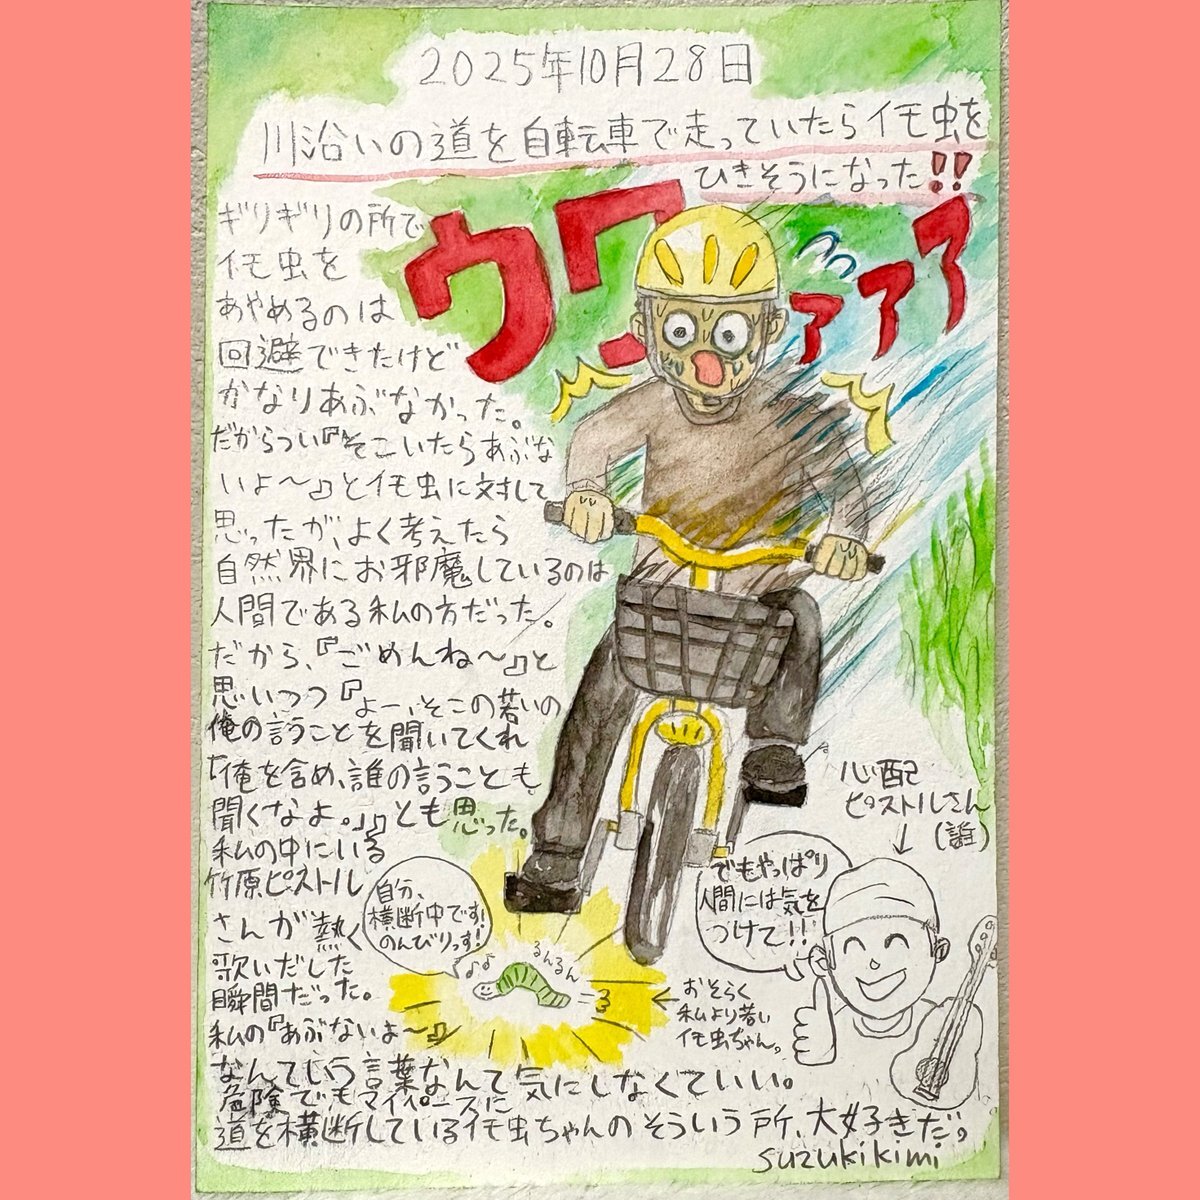 2025年10月28日
川沿いの道を自転車で走っていたらイモ虫を
ひきそうになった!!
ウワァアアア
ギリギリの所で
イモ虫を
あやめるのは
回避できたけど
かなりあぶなかった。
だからつい『そこいたらあぶな
いよ〜』とイモ虫に対して
思ったが、よく考えたら
自然界にお邪魔しているのは
人間である私の方だった。
だから、『ごめんね〜』と
思いつつ『よー、そこの若いの
俺の言うことを聞いてくれ
「俺を含め、誰の言うことも
聞くなよ。」』とも思った。
私の中にいる
竹原ピストル
さんが熱く
歌いだした
瞬間だった。
私の『あぶないよ〜』
なんていう言葉なんて気にしなくていい。
危険でもマイペースに
道を横断しているイモ虫ちゃんのそういう所、大好きだ。
自分、
横断中です!
のんびりっす!
るんるん
おそらく
私より若い
イモ虫ちゃん。
心配
ピストルさん
(誰)
でもやっぱり
人間には気を
つけて!!
suzukikimi